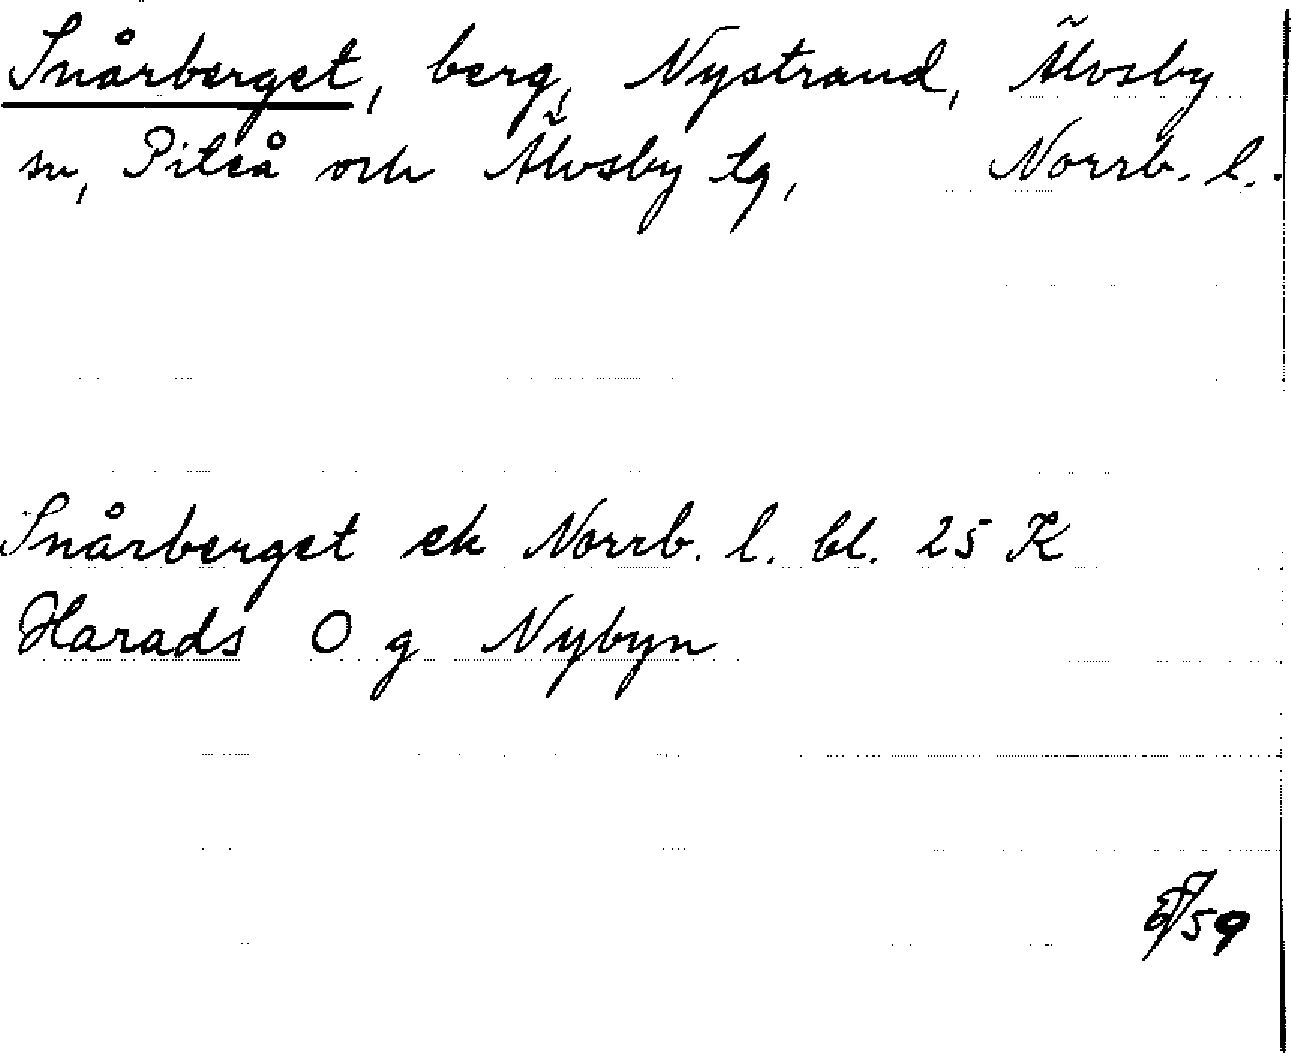 Snårberget, berg, Nystrand, Älvsby
sn, Piteå och Älvsby tg, Norrb. l.
Snårberget ek Norrb. l. bl. 25 K
Harads O g Nybyn